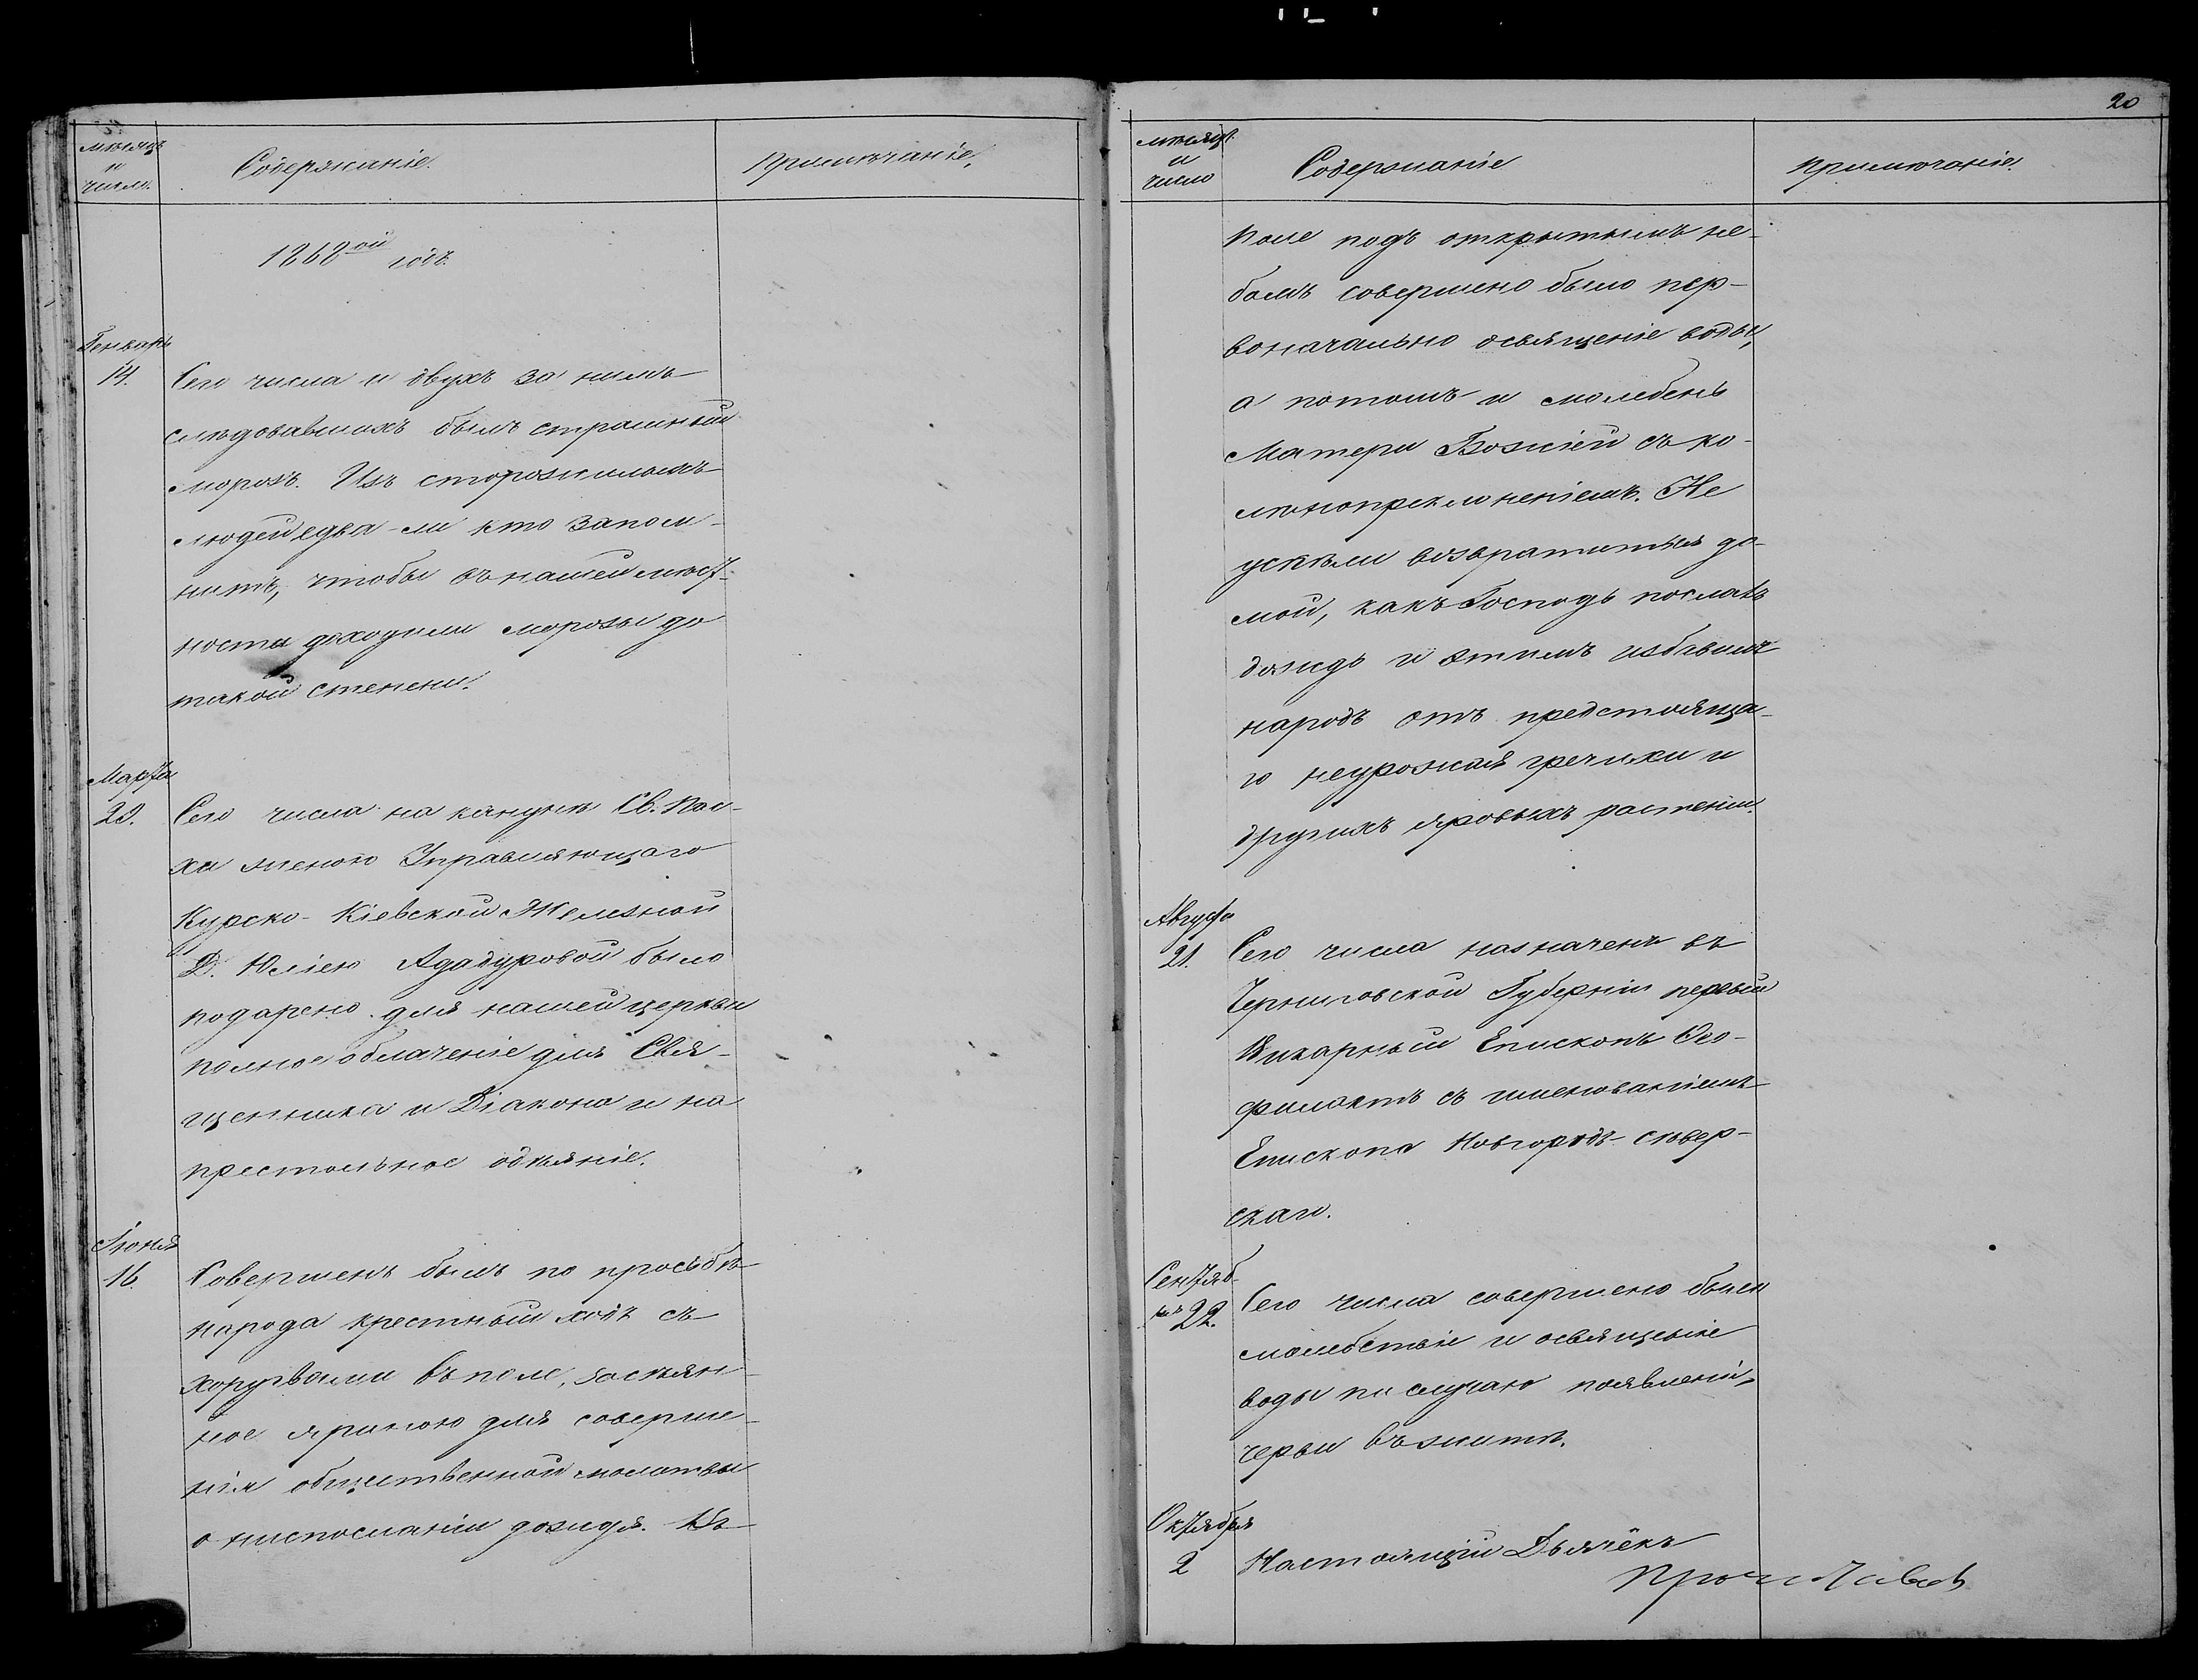 20
мѣсяцъ
и
число.
Содержаніе.
Примѣчаніе.
1868ой годъ.
Генварь
14. Сего числа и двухъ за нимъ
слѣдовавшихъ былъ страшный
морозъ. Изъ сторожилыхъ
людей едва-ли кто запом-
нитъ, чтобы въ нашей мѣст-
ности доходили морозы до
такой степени.
Марта
29. Сего числа на канунѣ Св. Пас-
хи женою Управляющаго
Курско-Кіевской Железной
Д. Юліею Ададуровой было
подарено для нашей церкви
полное облаченіе для Свя-
щенника и Діакона и на
престольное одѣяніе.
Іюня
16. Совершенъ былъ по просьбѣ
народа крестный ходъ съ
хоругвами въ поле, засѣян-
ное яриною для соверше-
нія общественной молитвы
о ниспосланіи дождя. Въ
мѣсяцъ
и
число
Содержаніе
Примѣчаніе.
поле подъ открытымъ не-
бомъ совершено было пер-
воначально освященіе воды,
а потомъ и молебенъ
Матери Божіей съ ко-
лѣнопреклоненіемъ. Не
успѣли возвратиться до-
мой, какъ Господь послалъ
дождь и этимъ избавилъ
народъ отъ предстояща-
го неурожая гречихи и
другихъ яровыхъ растеній.
Августа
21. Сего числа назначенъ въ
Черниговской Губерніи первый
Викарный Епископъ Фео-
филактъ съ именованіемъ
Епископа Новгородъ-Сѣвер-
скаго.
Сентяб-
ря 22. Сего числа совершено было
молебствіе и освященіе
воды по случаю появленія
червы въ житѣ.
Октября
2 Настоящій Дьячёкъ